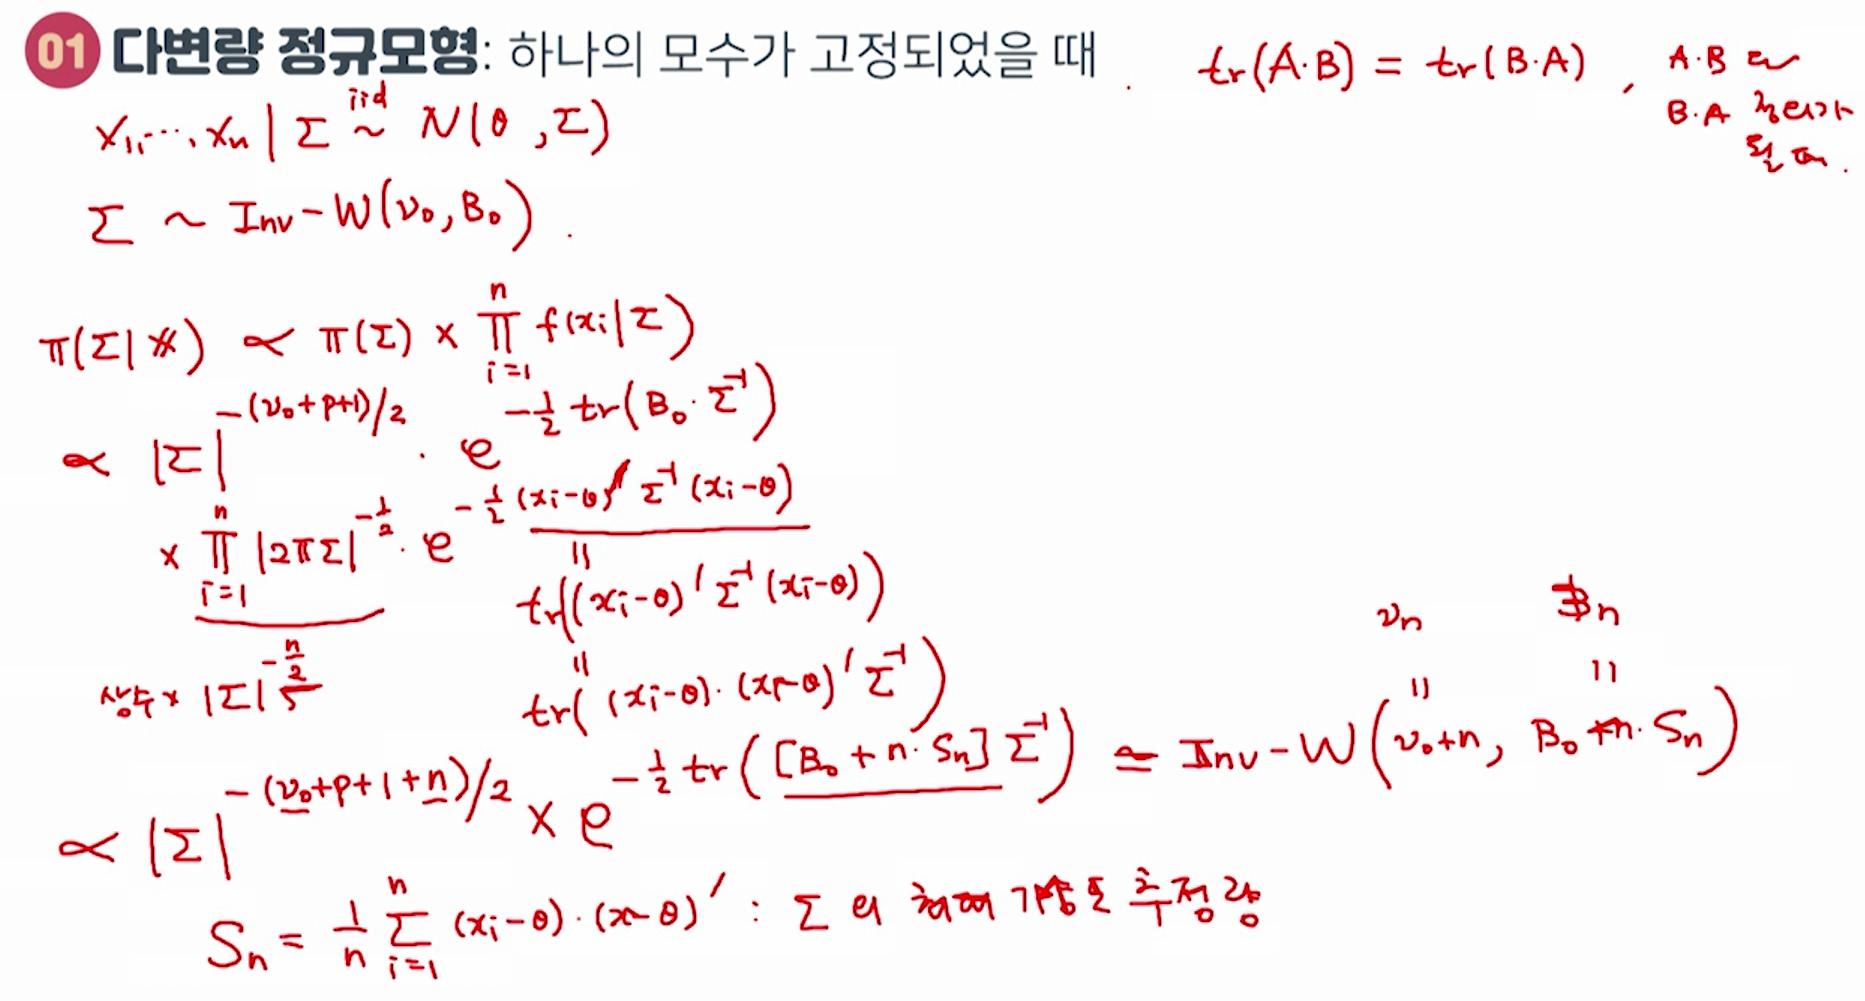 01 다변량 정규모형: 하나의 모수가 고정되었을 때
tr(A·B) = tr(B·A) , A·B 와
B·A 정의가
될 때.
x₁, ..., xₙ | Σ ~ⁱⁱᵈ N(θ, Σ)
Σ ~ Inv-W(ν₀, B₀).
π(Σ|𝕏) ∝ π(Σ) × ∏ᵢ₌₁ⁿ f(xᵢ|Σ)
∝ |Σ|^{-(ν₀+p+1)/2} · e^{-½ tr(B₀·Σ⁻¹)}
× ∏ᵢ₌₁ⁿ |2πΣ|^{-½} · e^{-½ (xᵢ-θ)′ Σ⁻¹ (xᵢ-θ)}
||
tr((xᵢ-θ)′ Σ⁻¹ (xᵢ-θ))
||
상수 × |Σ|^{-n/2}
tr((xᵢ-θ)·(xᵢ-θ)′ Σ⁻¹)
νₙ Bₙ
|| ||
∝ |Σ|^{-(ν₀+p+1+n)/2} × e^{-½ tr([B₀+n·Sₙ] Σ⁻¹)} ≃ Inv-W(ν₀+n, B₀+n·Sₙ)
Sₙ = 1/n Σᵢ₌₁ⁿ (xᵢ-θ)·(x-θ)′ : Σ의 최대가능도 추정량